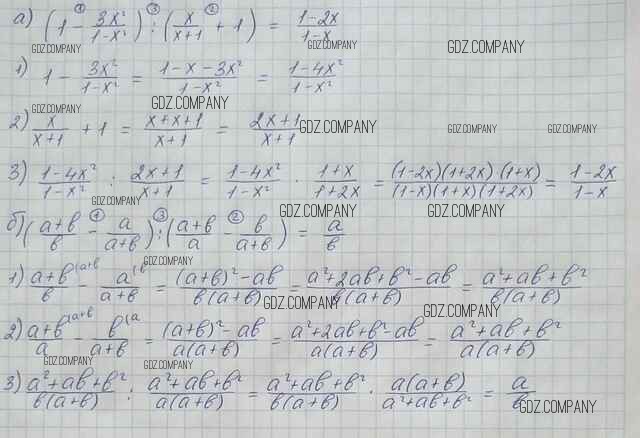 а) (1 - 3x²/(1-x²)) : (x/(x+1) + 1) = (1-2x)/(1-x)
GDZ.COMPANY GDZ.COMPANY GDZ.COMPANY
1) 1 - 3x²/(1-x²) = (1-x-3x²)/(1-x²) = (1-4x²)/(1-x²)
GDZ.COMPANY GDZ.COMPANY
2) x/(x+1) + 1 = (x+x+1)/(x+1) = (2x+1)/(x+1) GDZ.COMPANY GDZ.COMPANY GDZ.COMPANY
3) (1-4x²)/(1-x²) : (2x+1)/(x+1) = (1-4x²)/(1-x²) · (1+x)/(1+2x) = (1-2x)(1+2x)·(1+x)/((1-x)(1+x)(1+2x)) = (1-2x)/(1-x)
GDZ.COMPANY GDZ.COMPANY GDZ.COMPANY
б) ((a+b)/b - a/(a+b)) : ((a+b)/a - b/(a+b)) = a/b
GDZ.COMPANY
1) (a+b)/b - a/(a+b) = ((a+b)²-ab)/(b(a+b)) = (a²+2ab+b²-ab)/(b(a+b)) = (a²+ab+b²)/(b(a+b))
GDZ.COMPANY GDZ.COMPANY
2) (a+b)/a - b/(a+b) = ((a+b)²-ab)/(a(a+b)) = (a²+2ab+b²-ab)/(a(a+b)) = (a²+ab+b²)/(a(a+b))
GDZ.COMPANY GDZ.COMPANY
3) (a²+ab+b²)/(b(a+b)) : (a²+ab+b²)/(a(a+b)) = (a²+ab+b²)/(b(a+b)) · a(a+b)/(a²+ab+b²) = a/b
GDZ.COMPANY